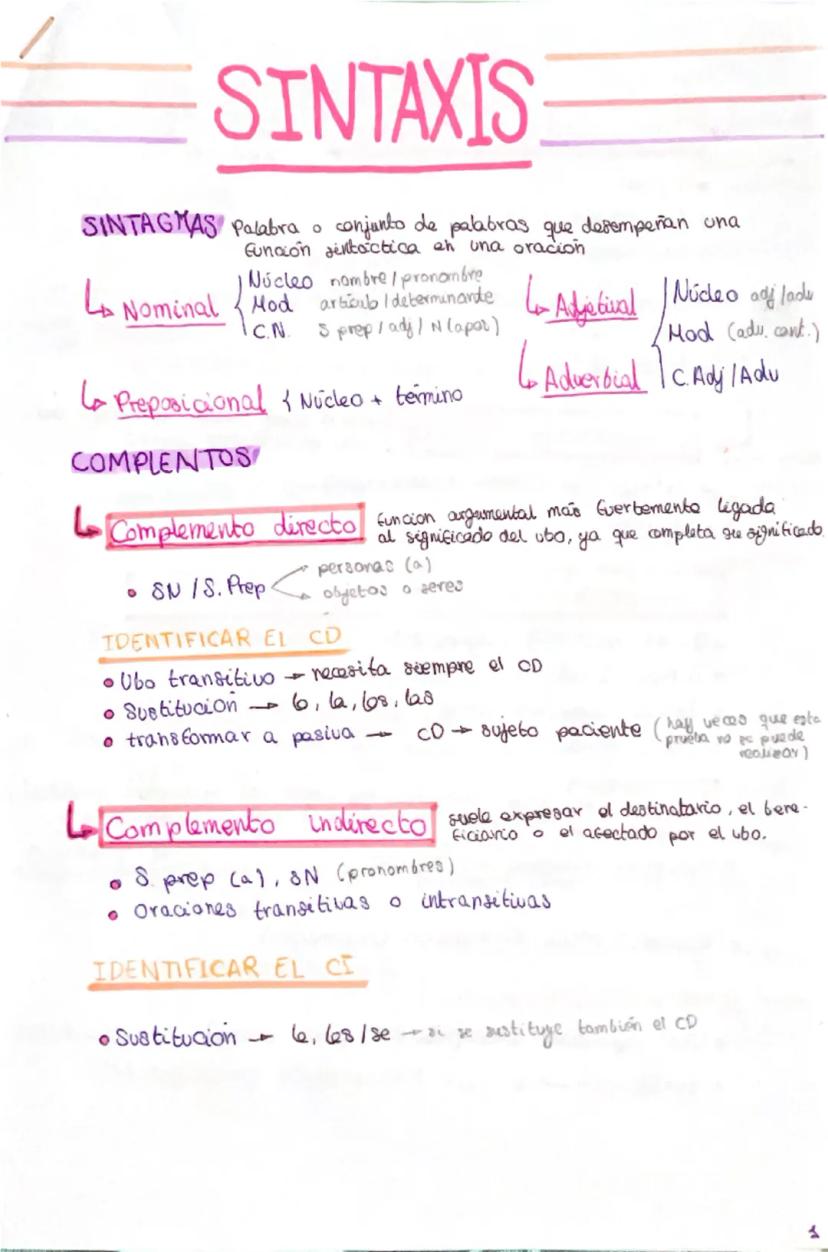 SINTAXIS
SINTAGMAS Palabra o conjunto de palabras que desempeñan una
función sintáctica en una oración
↳ Nominal { Núcleo nombre / pronombre
Mod artículo / determinante
C.N. S prep / adj / N (apos)
↳ Adjetival
↳ Adverbial
Núcleo adj / adv
Mod (adv. cant.)
C. Adj / Adv
↳ Preposicional { Núcleo + término
COMPLENTOS
↳ Complemento directo función argumental más fuertemente ligada
al significado del vbo, ya que completa su significado.
• SN / S. Prep
personas (a)
objetos o seres
IDENTIFICAR EL CD
• Vbo transitivo → necesita siempre el CD
• Sustitución → lo, la, los, las
• transformar a pasiva → CD → sujeto paciente (hay veces que esta
prueba no se puede
realizar)
↳ Complemento indirecto suele expresar el destinatario, el bene-
ficiario o el afectado por el vbo.
• S. prep (a), SN (pronombres)
• Oraciones transitivas o intransitivas
IDENTIFICAR EL CI
• Sustitución → le, les / se → si se sustituye también el CD
1